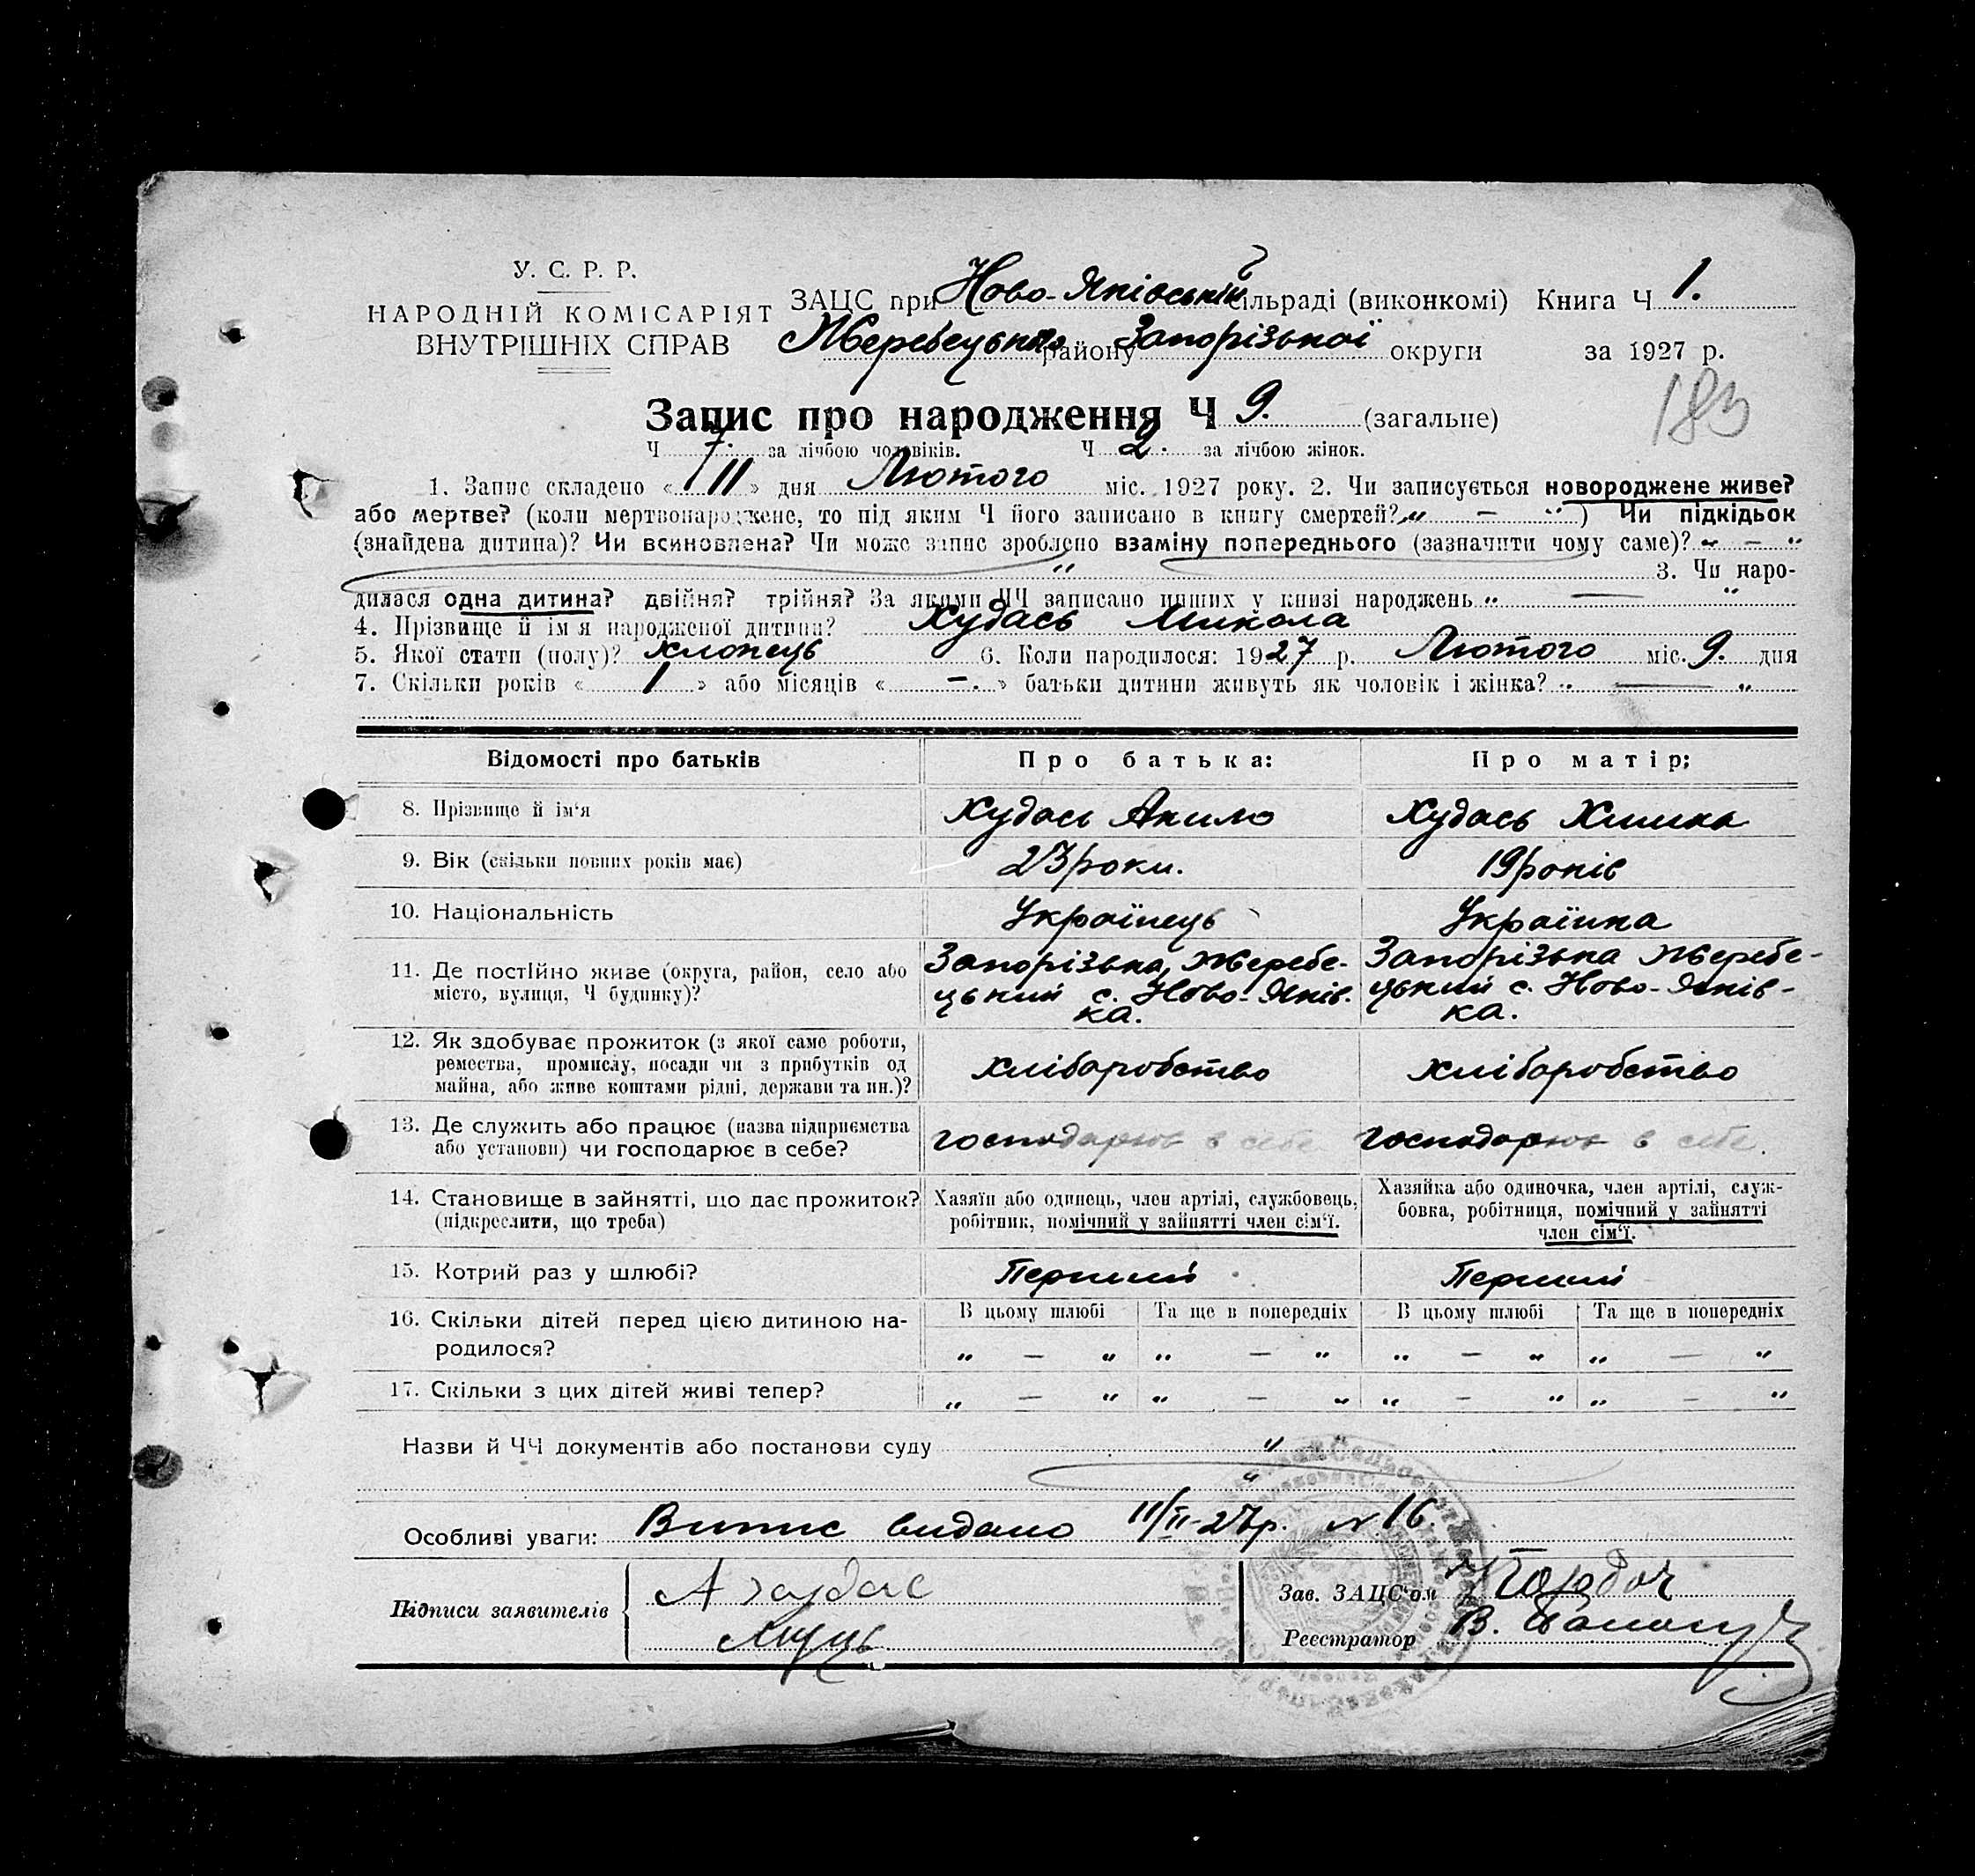 У. С. Р. Р.
НАРОДНІЙ КОМІСАРІЯТ
ВНУТРІШНІХ СПРАВ
ЗАЦС при Ново-Яківській сільраді (виконкомі) Книга Ч 1.
Жеребецького району Запорізької округи за 1927 р.
183
Запис про народження Ч 9. (загальне)
Ч 7. за лічбою чоловіків. Ч 2. за лічбою жінок.
1. Запис складено « 11 » дня Лютого міс. 1927 року. 2. Чи записується новороджене живе?
або мертве? (коли мертвонароджене, то під яким Ч його записано в книгу смертей? „ — “) Чи підкідьок
(знайдена дитина)? Чи всиновлена? Чи може запис зроблено взаміну попереднього (зазначити чому саме)? „ — “
„ 3. Чи наро-
дилася одна дитина? двійня? трійня? За якими ЧЧ записано инших у книзі народжень „ — “
4. Прізвище й ім'я народженої дитини? Худась Микола
5. Якої стати (полу)? хлопець 6. Коли народилося: 1927 р. Лютого міс. 9. дня
7. Скільки років « 1 » або місяців « —. » батьки дитини живуть як чоловік і жінка? „ — “
Відомості про батьків Про батька: Про матір:
8. Прізвище й ім'я Худась Акило Худась Химка
9. Вік (скільки повних років має) 23 роки. 19 років
10. Національність Українець Українка
11. Де постійно живе (округа, район, село або місто, вулиця, Ч будинку)?
Запорізька, Жеребе-
цький с. Ново-Яків-
ка.
Запорізька Жеребе-
цький с. Ново-Яків-
ка.
12. Як здобуває прожиток (з якої саме роботи,
ремества, промислу, посади чи з прибутків од
майна, або живе коштами рідні, держави та ин.)?
хліборобство хліборобство
13. Де служить або працює (назва підприємства
або установи) чи господарює в себе?
господарює в себе господарює в себе.
14. Становище в зайнятті, що дає прожиток?
(підкреслити, що треба)
Хазяїн або одинець, член артілі, службовець,
робітник, помічний у зайнятті член сім'ї.
Хазяйка або одиночка, член артілі, служ-
бовка, робітниця, помічний у зайнятті
член сім'ї.
15. Котрий раз у шлюбі? Перший Перший
16. Скільки дітей перед цією дитиною на-
родилося?
В цьому шлюбі Та ще в попередніх В цьому шлюбі Та ще в попередніх
„ — “ „ — “ „ — “ „ — “
17. Скільки з цих дітей живі тепер? „ — “ „ — “ „ — “ „ — “
Назви й ЧЧ документів або постанови суду „
„
Особливі уваги: Випис видано 11/II-27р. № 16.
Підписи заявителів А Худас
Зав. ЗАЦС'ом
Реєстратор В.